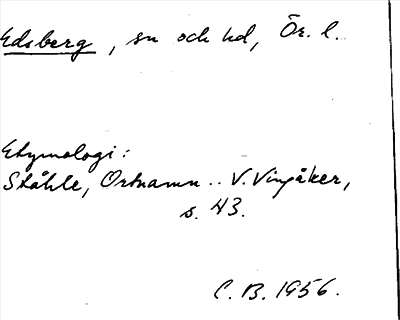 Edsberg, sn och hd, Ör. l.
Etymologi:
Ståhle, Ortnamn.. V. Vingåker,
s. 43.
C. B. 1956.